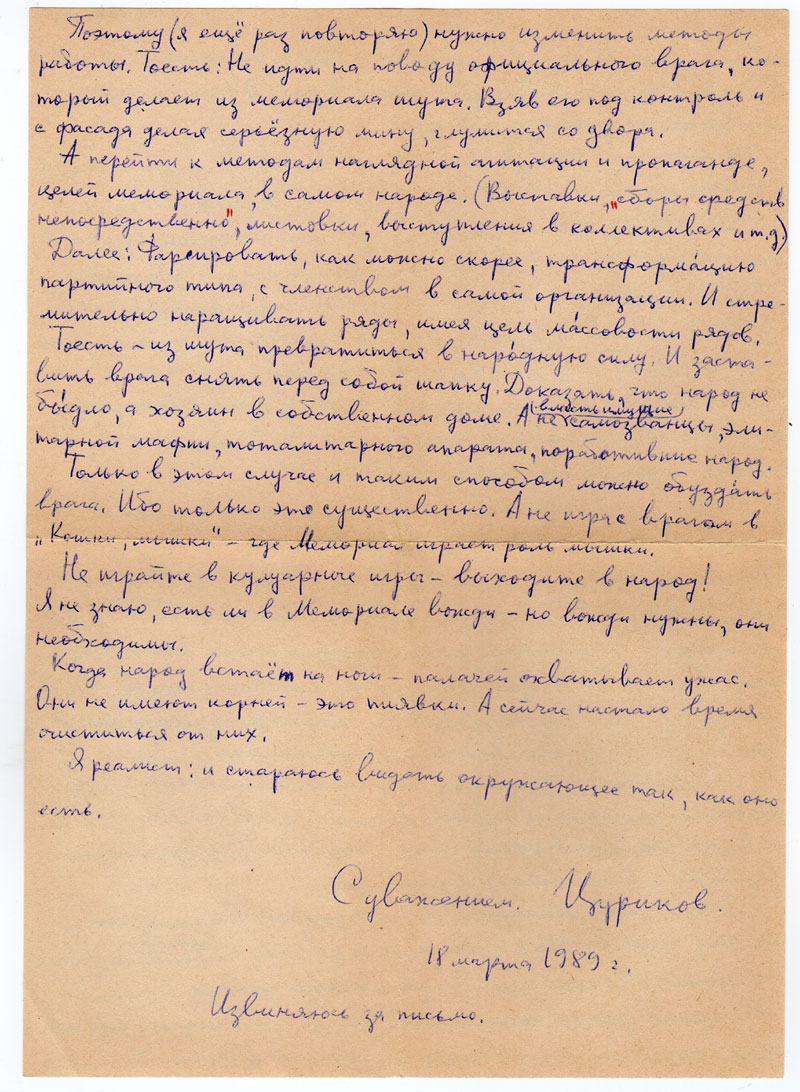 Поэтому (я ещё раз повторяю) нужно изменить методы
работы. Тоесть: Не идти на поводу официального врага, ко-
торый делает из мемориала шута. Взяв его под контроль и
с фасада делая серьёзную мину, глумится со двора.
А перейти к методам наглядной агитации и пропаганде,
целей мемориала, в самом народе. (Выставки, „сборы средств
непосредственно", листовки, выступления в коллективах и т.д.)
Далее: Фарсировать, как можно скорее, трансформа́цию
партийного типа, с членством в самой организации. И стре-
мительно наращивать ряды, имея цель ма́ссовости рядов.
Тоесть – из шута превратиться в наро́дную силу. И заста-
вить врага снять перед собой шапку. Доказать, что народ не
бы́дло, а хозяин в собственном доме. А не (власть имущие) самозванцы, эли-
тарной мафии, тоталитарного апарата, поработившие народ.
Только в этом случае и таким способом можно обузда́ть
врага. Ибо только это существенно. А не игра с врагом в
„Кошки, мышки" – где Мемориал играет роль мышки.
Не играйте в кулуарные игры – выходите в народ!
Я не знаю, есть ли в Мемориале вожди – но вожди нужны, они
необходимы.
Когда народ встаёт на ноги – палачей охватывает ужас.
Они не имеют корней – это пиявки. А сейчас настало время
очиститься от них.
Я реалист: и стараюсь видать окружающее так, как оно
есть.
С уважением. Цуриков.
18 марта 1989 г.
Извиняюсь за письмо.